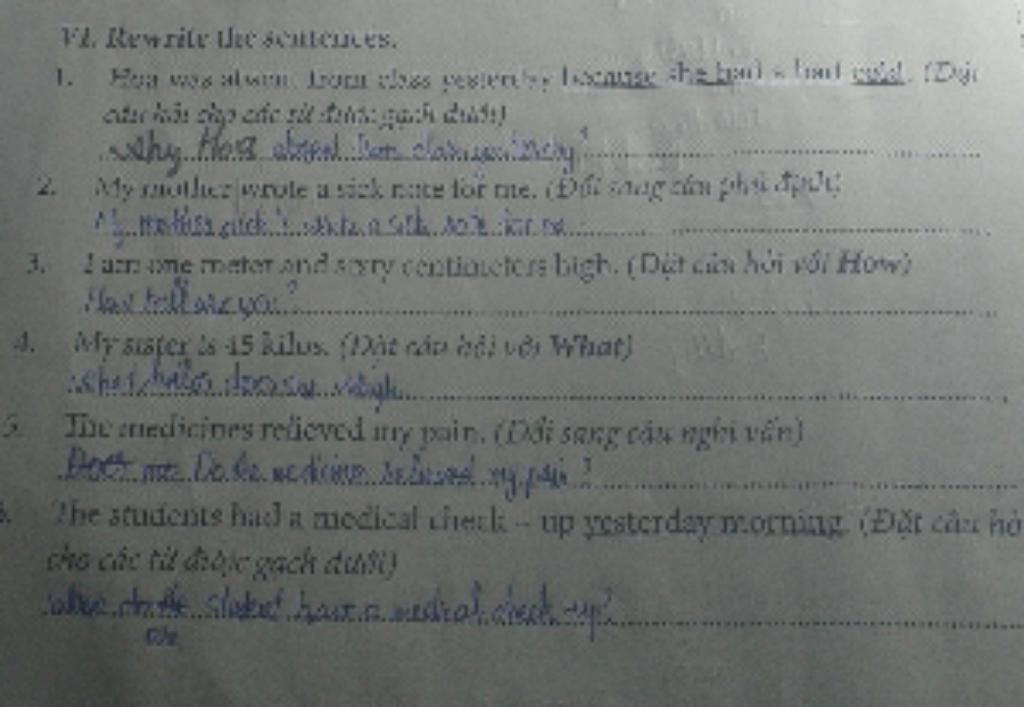 VI. Rewrite the sentences.
1. Hoa was absent from class yesterday because she had a bad cold. (Đặt
câu hỏi cho các từ được gạch dưới)
Why Hoa absent from class yesterday?
2. My mother wrote a sick note for me. (Đổi sang câu phủ định)
My mother didn't write a sick note for me
3. I am one meter and sixty centimeters high. (Đặt câu hỏi với How)
How tall are you?
4. My sister is 45 kilos. (Đặt câu hỏi với What)
What does weigh
5. The medicines relieved my pain. (Đổi sang câu nghi vấn)
Do the medicine relieved my pain?
The students had a medical check – up yesterday morning. (Đặt câu hỏ
cho các từ được gạch dưới)
have a medical check-up?